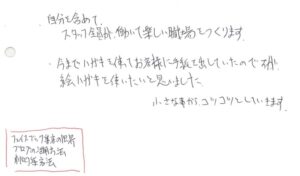 ・自分を含めて、
スタッフ全員が、働いて楽しい職場をつくります。
・今までハガキを使ってお客様に手紙を出していたので
絵ハガキを使いたいと思いました
小さな事から、コツコツとしていきます。
フェイスブック集客の世界
ブログの活用方法